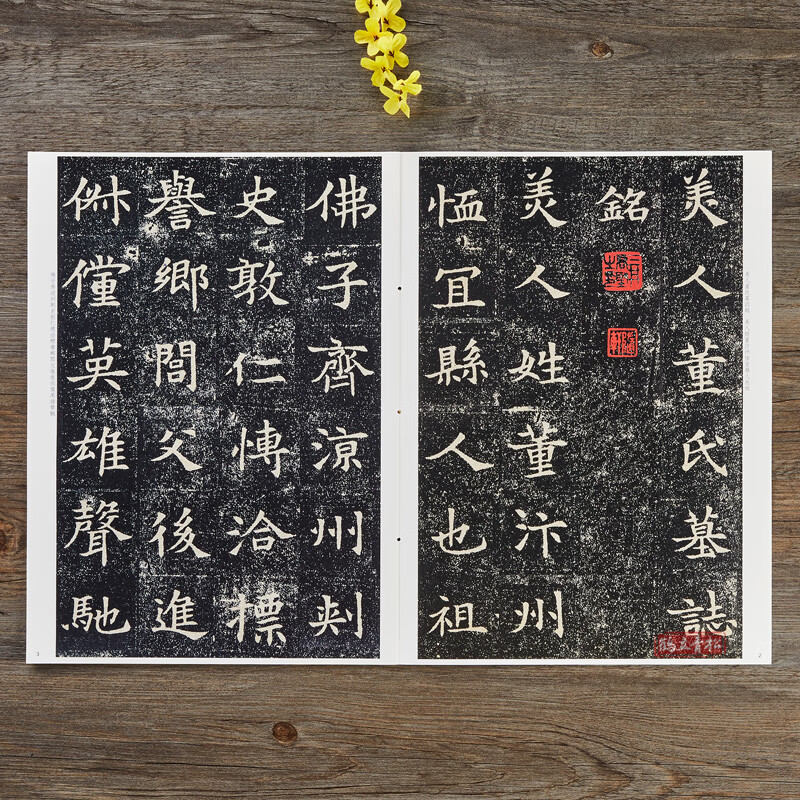 美人董氏墓誌
銘
美人姓董汴州
恤宜縣人也祖
佛子齊涼州刺
史敦仁慱洽摽
譽鄉閭父後進
俶儻英雄聲馳
2
3